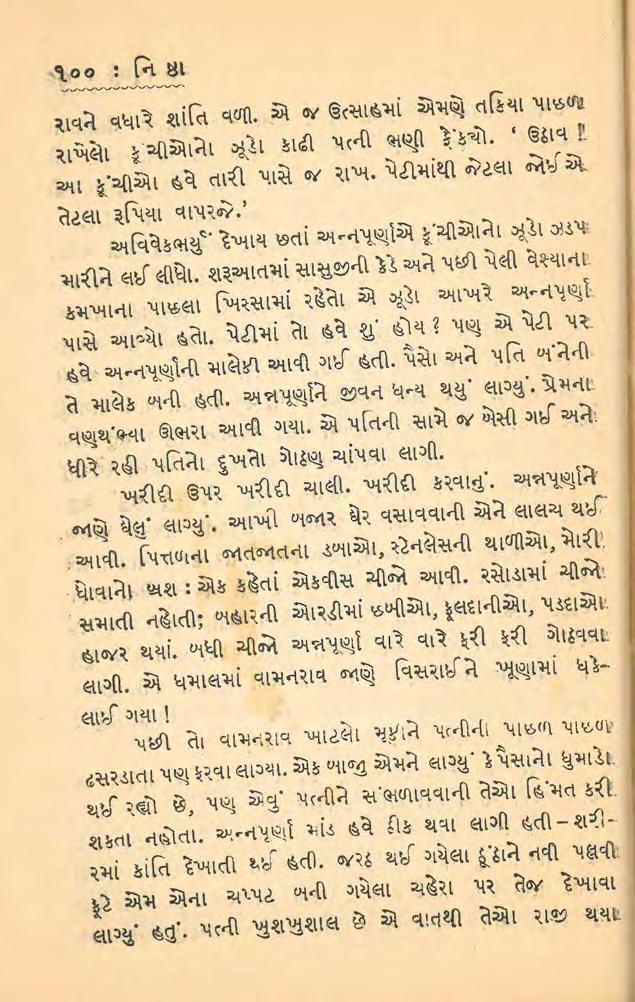 ૧૦૦ : નિ ષ્ઠા
રાવને વધારે શાંતિ વળી. એ જ ઉત્સાહમાં એમણે તકિયા પાછળ
રાખેલો કૂંચીઓનો ઝૂડો કાઢી પત્ની ભણી ફેંક્યો. ‘ ઉઠાવ !
આ કૂંચીઓ હવે તારી પાસે જ રાખ. પેટીમાંથી જેટલા જોઈએ
તેટલા રૂપિયા વાપરજે.’
અવિવેકભર્યું દેખાય છતાં અન્નપૂર્ણાએ કૂંચીઓનો ઝૂડો ઝડપ
મારીને લઈ લીધો. શરૂઆતમાં સાસુજીની કેડે અને પછી પેલી વેશ્યાના
કમખાના પાછલા ખિસ્સામાં રહેતો એ ઝૂડો આખરે અન્નપૂર્ણા
પાસે આવ્યો હતો. પેટીમાં તો હવે શું હોય ? પણ એ પેટી પર
હવે અન્નપૂર્ણાની માલેકી આવી ગઈ હતી. પૈસો અને પતિ બંનેની
તે માલેક બની હતી. અન્નપૂર્ણાને જીવન ધન્ય થયું લાગ્યું. પ્રેમના
વણથંભ્યા ઊભરા આવી ગયા. એ પતિની સામે જ બેસી ગઈ અને
ધીરે રહી પતિનો દુખતો ગોઠણ ચાંપવા લાગી.
ખરીદી ઉપર ખરીદી ચાલી. ખરીદી કરવાનું. અન્નપૂર્ણાને
જાણે ઘેલું લાગ્યું. આખી બજાર ઘેર વસાવવાની એને લાલચ થઈ
આવી. પિત્તળના જાતજાતના ડબાઓ, સ્ટેનલેસની થાળીઓ, મોરી
ધોવાનો બ્રશ : એક કહેતાં એકવીસ ચીજો આવી. રસોડામાં ચીજો
સમાતી નહોતી; બહારની ઓરડીમાં છબીઓ, ફૂલદાનીઓ, પડદાઓ
હાજર થયાં. બધી ચીજો અન્નપૂર્ણા વારે વારે ફરી ફરી ગોઠવવા
લાગી. એ ધમાલમાં વામનરાવ જાણે વિસરાઈને ખૂણામાં ધકે–
લાઈ ગયા !
પછી તો વામનરાવ ખાટલો મૂકીને પત્નીની પાછળ પાછળ
ઢસરડાતા પણ ફરવા લાગ્યા. એક બાજુ એમને લાગ્યું કે પૈસાનો ધુમાડો
થઈ રહ્યો છે, પણ એવું પત્નીને સંભળાવવાની તેઓ હિંમત કરી
શકતા નહોતા. અન્નપૂર્ણા માંડ હવે ઠીક થવા લાગી હતી – શરી–
રમાં કાંતિ દેખાતી થઈ હતી. જરઠ થઈ ગયેલા ઠૂંઠાને નવી પલ્લવી
ફૂટે એમ એના ચપ્પટ બની ગયેલા ચહેરા પર તેજ દેખાવા
લાગ્યું હતું. પત્ની ખુશખુશાલ છે એ વાતથી તેઓ રાજી થયા